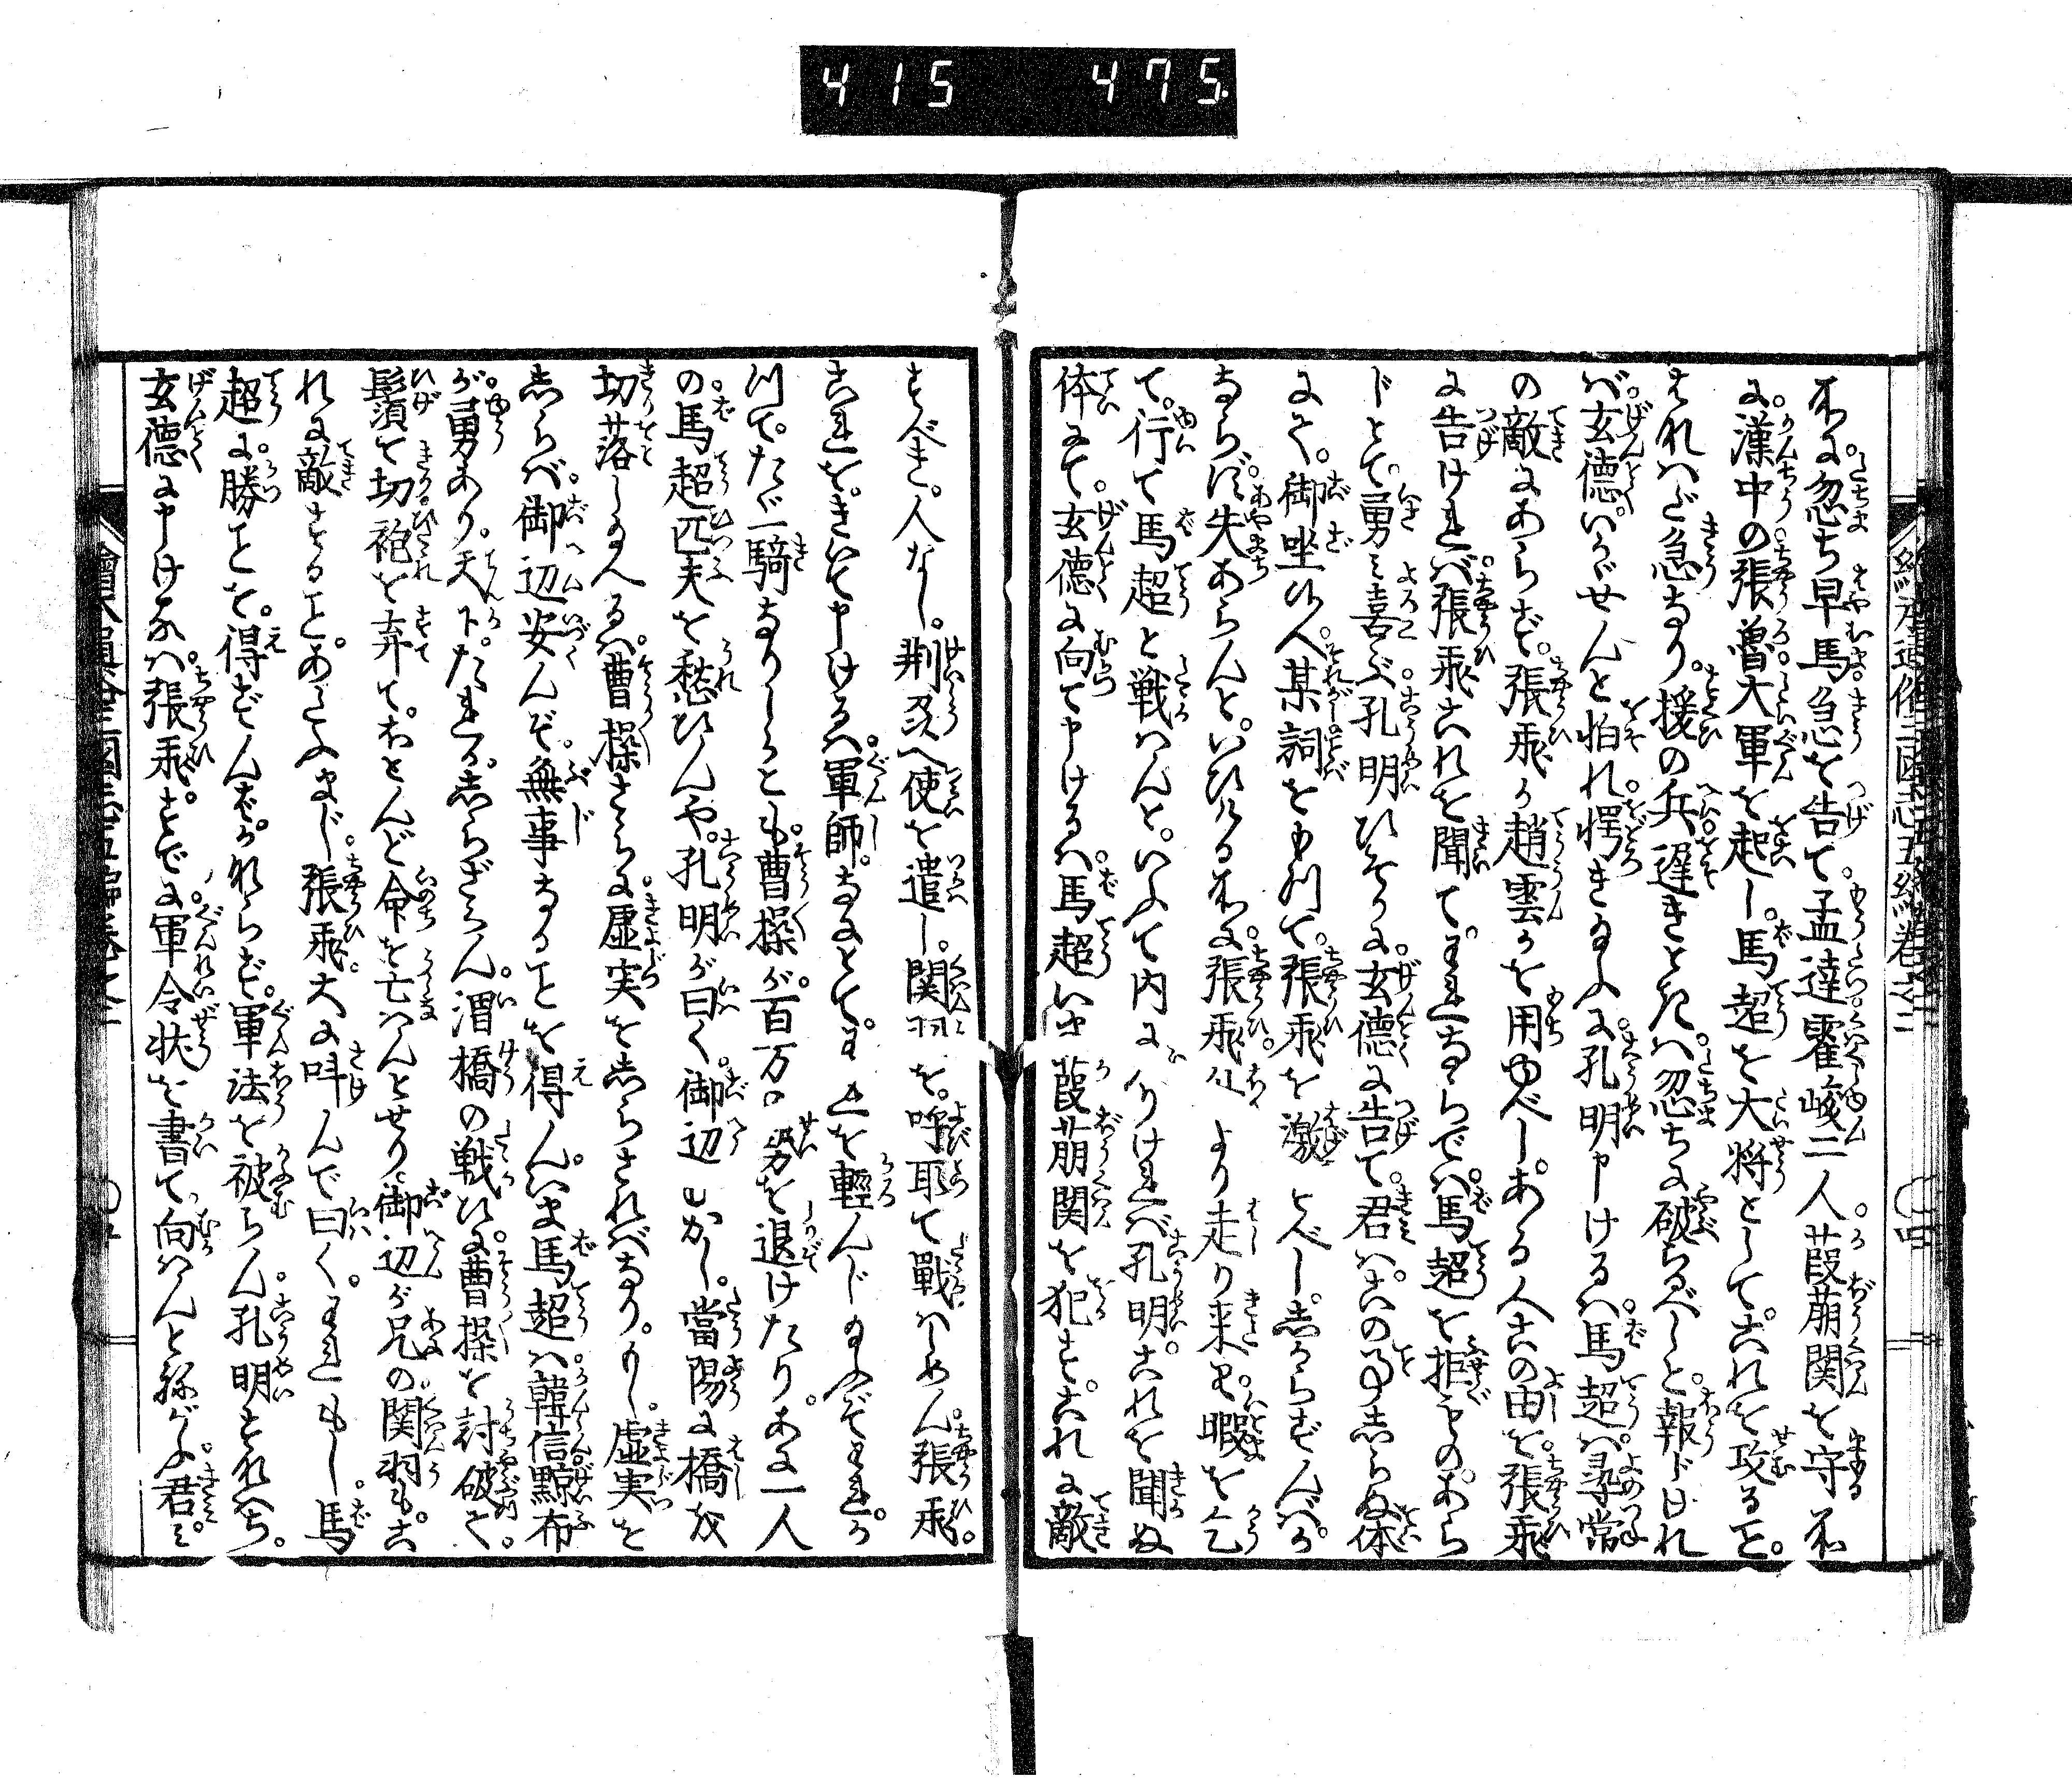 415 475
所に。忽ち早馬。急を告て。孟達。霍峻二人。葭萌関を守る所
に。漢中の。張魯。大軍を起し。馬超を大将として。これを攻ること。
はなはだ急なり。援の兵。遅きときは。忽ちに破らるべしと。報じけれ
ば。玄德いかゞせんと怕れ。愕き給ふに。孔明申けるハ。馬超ハ。尋常
の敵にあらず。張飛か趙雲かを用ゆべし。ある人この由を。張飛
に告けれバ。張飛これを聞て。われならでハ。馬超を拒ぐものあら
じとて。勇み喜ぶ。孔明ひそかに。玄德に告て。君ハ。この事しらぬ体
にて。御坐候へ。某詞をもつて。張飛を激すべし。しからざんバ。か
ならず失あらんと。いひける所に。張飛外より走り来り。暇を乞
て。行て馬超と戦ハんと。いふて内に入けれバ孔明。これを聞ぬ
体にて。玄德に向て申けるハ。馬超いま葭萌関を犯す。これに敵
すべき。人なし。荆州へ使を遣し。関羽を。呼取て戰ハしめん。張飛。
これを。きいて申けるハ。軍師。なにとて。われを輕んじ給ふぞ。われ。か
つて。たゞ一騎なりしかども。曹操が。百万の勢を退けたり。あに一人
の。馬超匹夫を愁ひんや。孔明が曰く。御辺むかし。當陽に橋を
切落し給へるハ。曹操さらに。虚実をしらざれバなり。もし。虚実を
しらバ。御辺安んぞ。無事なることを得ん。いま馬超ハ。韓信黥布
が。勇あり。天下。たれか。しらざらん。渭橋の戦ひに。曹操を討破て。
髭須を切袍を弃て。ほとんど命を亡ハんとせり。御辺が兄の関羽も。こ
れに敵すること。あたふまじ。張飛。大に呌んで曰く。われもし。馬
超に。勝ことを。得ざんバ。かならず。軍法を被らん。孔明。すなハち。
玄德に申けるハ。張飛。すでに。軍令状を書て。向ハんと願ふ。君ミ。